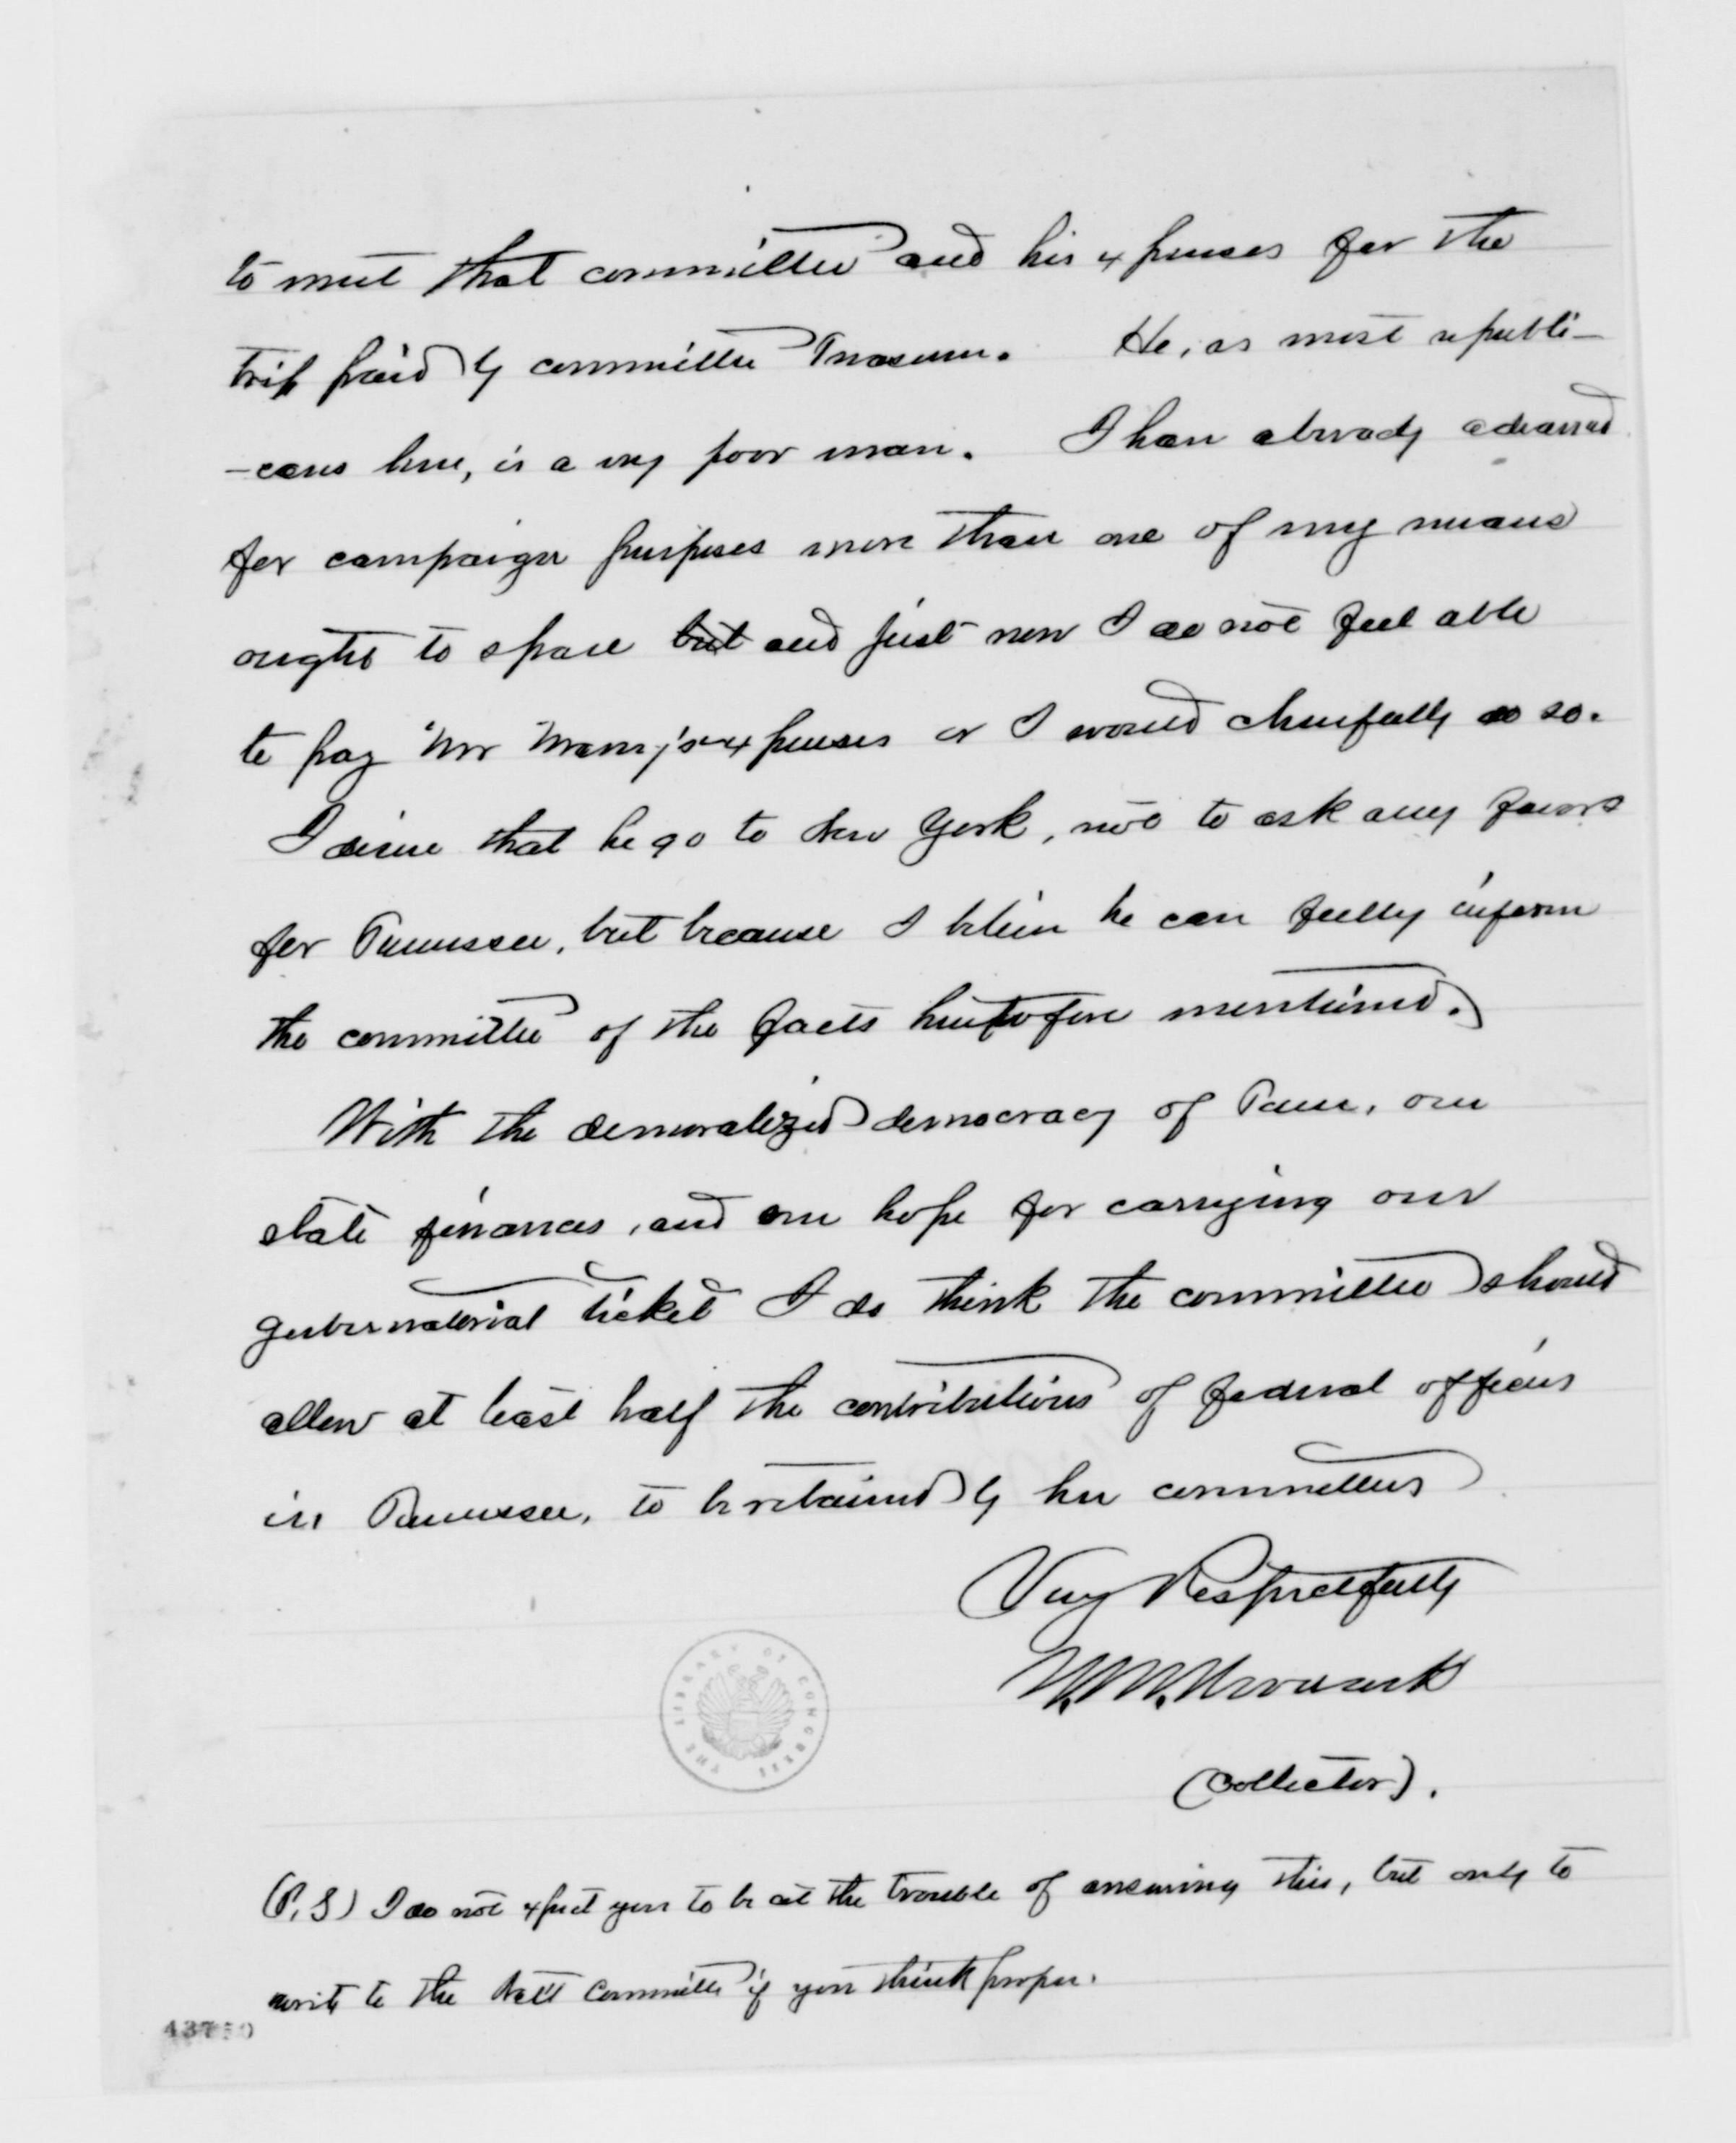 to meet that committee and his expenses for the
trip paid by committee Treasurer. He, as most republi-
-cans here, is a very poor man. I have already advanced
for campaign purposes more than one of my means
ought to spare but and just now I do not feel able
to pay Mr expenses or I would cheerfully do so.
I desire that he go to New York, not to ask any favors
for Tennessee, but because I believe he can fully inform
the committee of the facts heretofore mentioned.
With the demoralized democracy of Tenn, our
state finances, and our hope for carrying our
gubernatorial ticket I do think the committee should
allow at least half the contributions of federal officers
in Tennessee, to be retained by her committees
Very Respectfully
(Collector).
(P,S) I do not expect you to be at the trouble of answering this, but only to
write to the Natl Committee if you think proper.
THE LIBRARY OF CONGRESS
43750